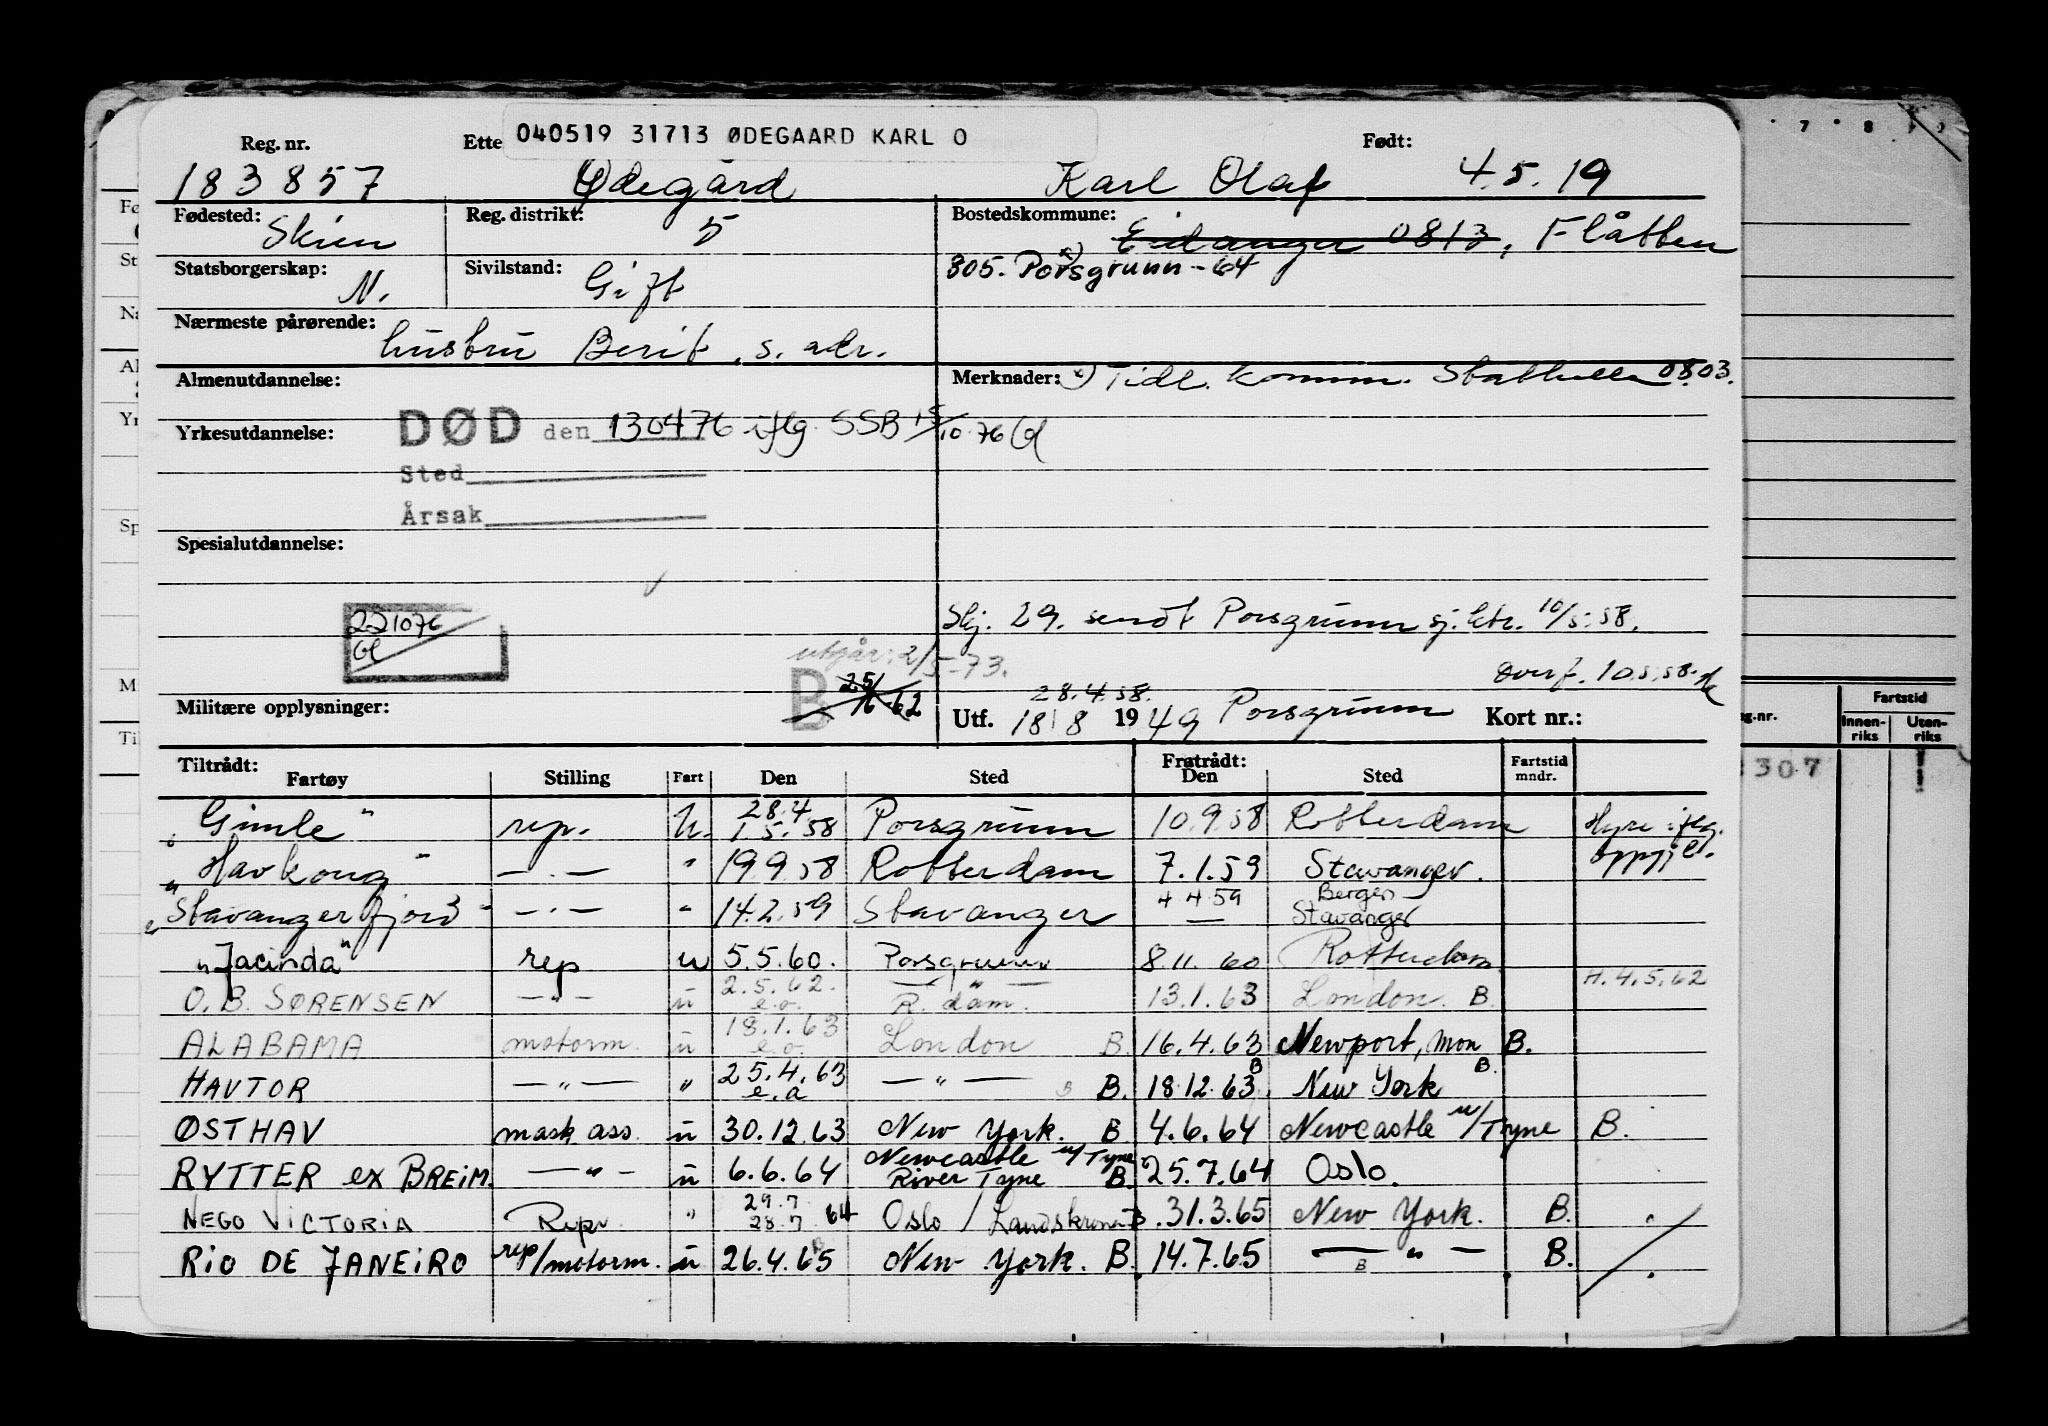 Reg. nr. Ette 040519 31713 ØDEGAARD KARL O Født:
183857 Ødegård Karl Olaf 4.5.19
Fødested: Skien Reg. distrikt: 5 Bostedskommune: Eidanger 0813, Flåtten
Statsborgerskap: N. Sivilstand: Gift x) 805. Porsgrunn-64
Nærmeste pårørende: hustru Berit, s. adr.
Almenutdannelse: Merknader: x) Tidl. komm. Stathelle 0803.
Yrkesutdannelse: DØD den 130476 iflg. SSB 15/10.76 Gl
Sted
Årsak
Spesialutdannelse:
221076
Gl
Skj. 29. sendt Porsgrunn sj.ktr. 10/5.58.
utgår: 2/5-73.
B 25/6-62
Overf. 10.5.58.
Militære opplysninger: 28.4.58.
Utf. 18/8 1949 Porsgrunn Kort nr.:
Tiltrådt: Fratrådt:
Fartøy Stilling Fart Den Sted Den Sted Fartstid mndr.
„Gimle" rep. U. 28.4 1.5.58 Porsgrunn 10.9.58 Rotterdam Hyre iflg. oppgj.
„Havkong" —.— " 19.9.58 Rotterdam 7.1.59 Stavanger.
„Stavangerfjord" —.— " 14.2.59 Stavanger 4.4.59 — Bergen Stavanger
„Jacinda" rep u 5.5.60. Porsgrunn 8.11.60 Rotterdam
O.B. SØRENSEN —"— u 2.5.62. e.o. R.dam. 13.1.63 London. B. H.4.5.62
ALABAMA motorm. u 18.1.63 e.o. London B. 16.4.63 Newport, Mon B.
HAVTOR —"— " 25.4.63 e.a —"— B. 18.12.63 B New York B.
ØSTHAV mask ass. u 30.12.63 New York. B. 4.6.64 Newcastle u/Tyne B.
RYTTER ex BREIM. —"— u 6.6.64 Newcastle u/Tyne River Tyne B. 25.7.64 Oslo.
NEGO VICTORIA Repr. " 29.7 28.7 64 Oslo / Landskrona B. 31.3.65 New York. B.
RIO DE JANEIRO rep/motorm. u 26.4.65 New York. B. 14.7.65 —"— B B.
7 8
Fartstid
g.nr. Innen-riks Uten-riks
307